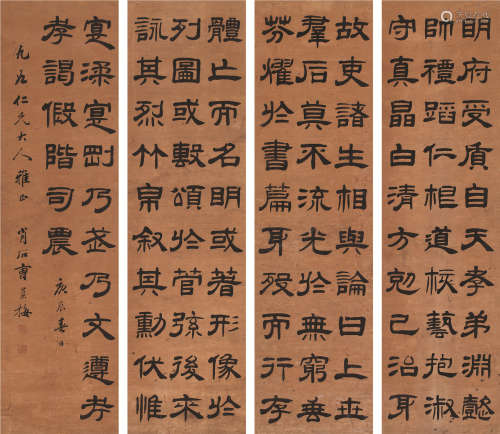 明府受質自天孝弟淵懿
帥禮蹈仁根道核藝抱淑
守真晶白清方勀己治身
故吏諸生相與論曰上世
羣后莫不流光於無窮垂
芬燿於書篇身歿而行存
體亡而名明或著形像於
列圖或毄頌於管弦後來
詠其烈竹帛叙其勳伏惟
寔渘寔剛乃武乃文遵考
孝謁假階司農
庚辰春日
九如仁兄大人雅正 肖石曹梅